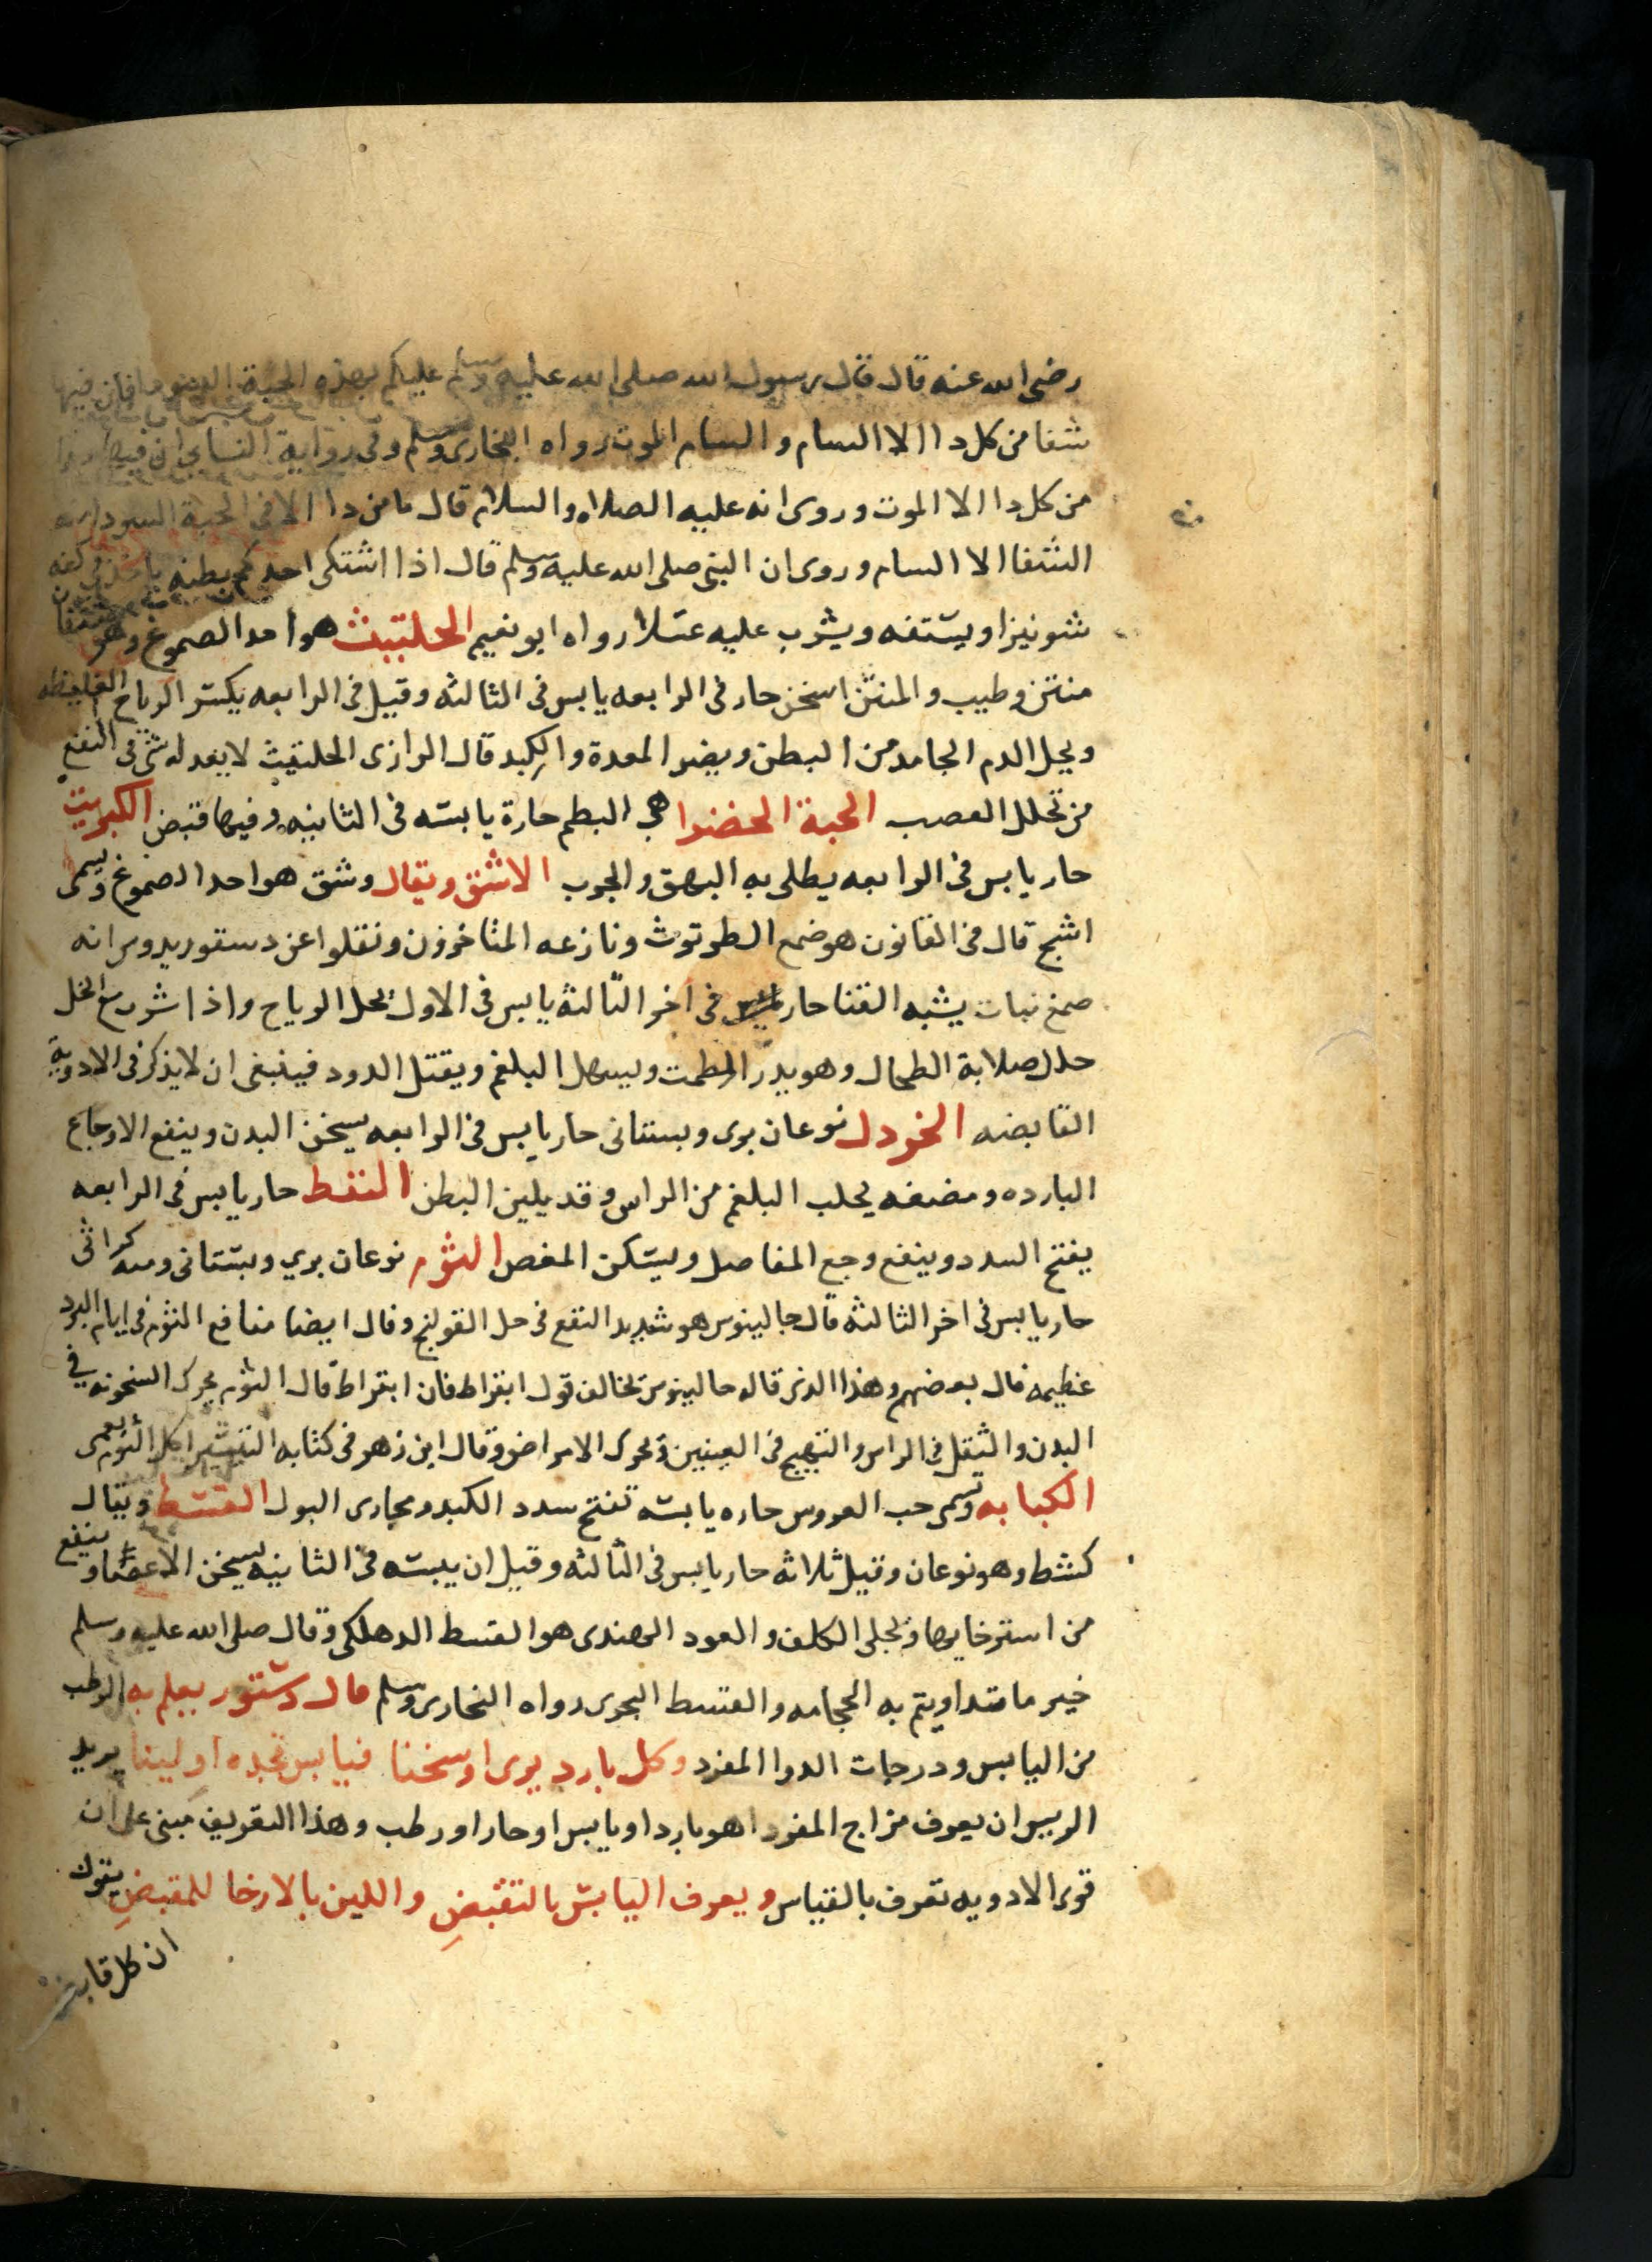 رضى الله عنه قال قال رسول الله صلى الله عليه وسلم عليكم بهذه الحبة السودا فان فيها
شفا من كل دا الا السام والسام الموت رواه البخارى ومسلم وفى رواية النساى ان فيها
من كل دا الا الموت وروى انه عليه الصلاه والسلام قال ما من دا الا فى الحبة السودا منه
الشفا الا السام وروى ان النبى صلى الله عليه وسلم قال اذا اشتكى احدكم بطنه ياخذ فى كفه
شونيزا ويستفه ويشرب عليه عسلا رواه ابو نعيم الحلتيت هو احد الصموغ وهو صنفان
منتن وطيب والمنتن اسخن حار فى الرابعه يابس فى الثالثه وقيل فى الرابعه يكسر الرياح الغليظه
ويحل الدم الجامد من البطن ويضر المعدة والكبد قال الرازى الحلتيت لا يعدله شى فى النفع
من تحلل العصب الحبة الخضرا هى البطم حارة يابسه فى الثانيه وفيها قبض الكبريت
حار يابس فى الرابعه يطلى به البهق والجرب الاشق ويقال وشق هو احد الصموغ ويسمى
اشج قال فى القانون هو صمغ الطرثوث ونازعه المتاخرون ونقلوا عن دسقوريدوس انه
صمغ نبات يشبه القنا حار فى اخر الثالثة يابس فى الاولى يحل الرياح واذا شرب مع الخل
حلل صلابة الطحال وهو يدر الطمث ويسهل البلغم ويقتل الدود فينبغى ان لا يذكر فى الادوية
القابضه الخردل نوعان برى وبستانى حار يابس فى الرابعه يسخن البدن وينفع الاوجاع
البارده ومضغه يجلب البلغم من الراس وقد يلين البطن النفط حار يابس فى الرابعه
يفتح السدد وينفع وجع المفاصل ويسكن المغص الثوم نوعان بري وبستانى ومنه كراثى
حار يابس فى اخر الثالثه قال جالينوس هو شديد النفع فى حل القولنج وقال ايضا منافع الثوم فى ايام البرد
عظيمه قال بعضهم وهذا الذى قاله جالينوس يخالف قول ابقراط فان ابقراط قال الثوم يحرك السخونه في
البدن والثقل فى الراس والتهيج فى العينين ويحرك الامراض وقال ابن زهر فى كتابه التيسير اكل الثوم يعمى
الكبابه وتسمى حب العروس حاره يابسه تفتح سدد الكبد ومجارى البول القسط ويقال
كشط وهو نوعان وقيل ثلاثه حار يابس فى الثالثه وقيل ان يبسه فى الثانيه يسخن الاعضا وينفع
من استرخايها ويجلى الكلف والعود الهندى هو القسط الدهلكى وقال صلى الله عليه وسلم
خير ما تداويتم به الحجامه والقسط البحرى رواه البخارى ومسلم قال دستور يعلم به الرطب
من اليابس ودرجات الدوا المفرد وكل بارد يرى او سخنا فيابس تجده او لينا يريد
الريس ان يعرف مزاج المفرد اهو بارد او يابس او حار او رطب وهذا التعريف مبنى على ان
قوى الادويه تعرف بالقياس ويعرف اليابس بالتقبض واللين بالارخا للمقبض يقول
ان كل قابض